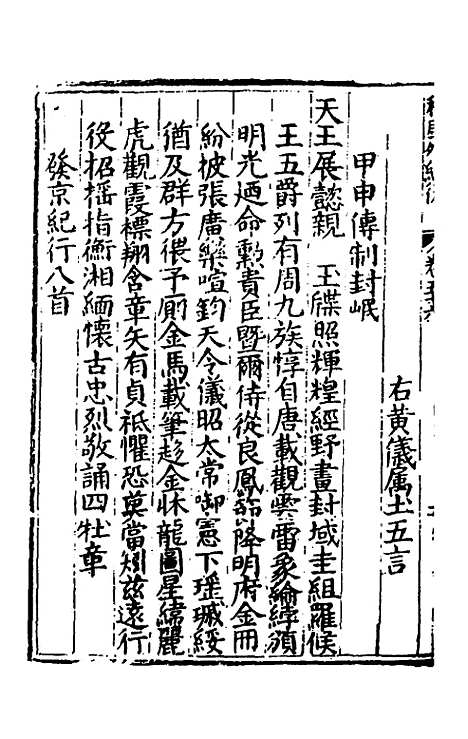 右黃儀屬土五言
甲申傳制封岷
天王展懿親 玉牒照輝煌經野畫封域圭組羅侯
王五爵列有周九族惇自唐載觀雲雷象綸綍頒
明光廼命勲貴臣暨爾侍從良鳳詔降明府金冊
紛披張廣樂喧鈞天令儀昭太常御憲下瑤墄綏
猶及群方偎予厠金馬載筆趍金牀龍圖星緯麗
虎觀霞褾翔含章矢有貞祗懼恐莫當矧兹遠行
役招摇指衡湘緬懷古忠烈敬誦四牡章
發京紀行八首